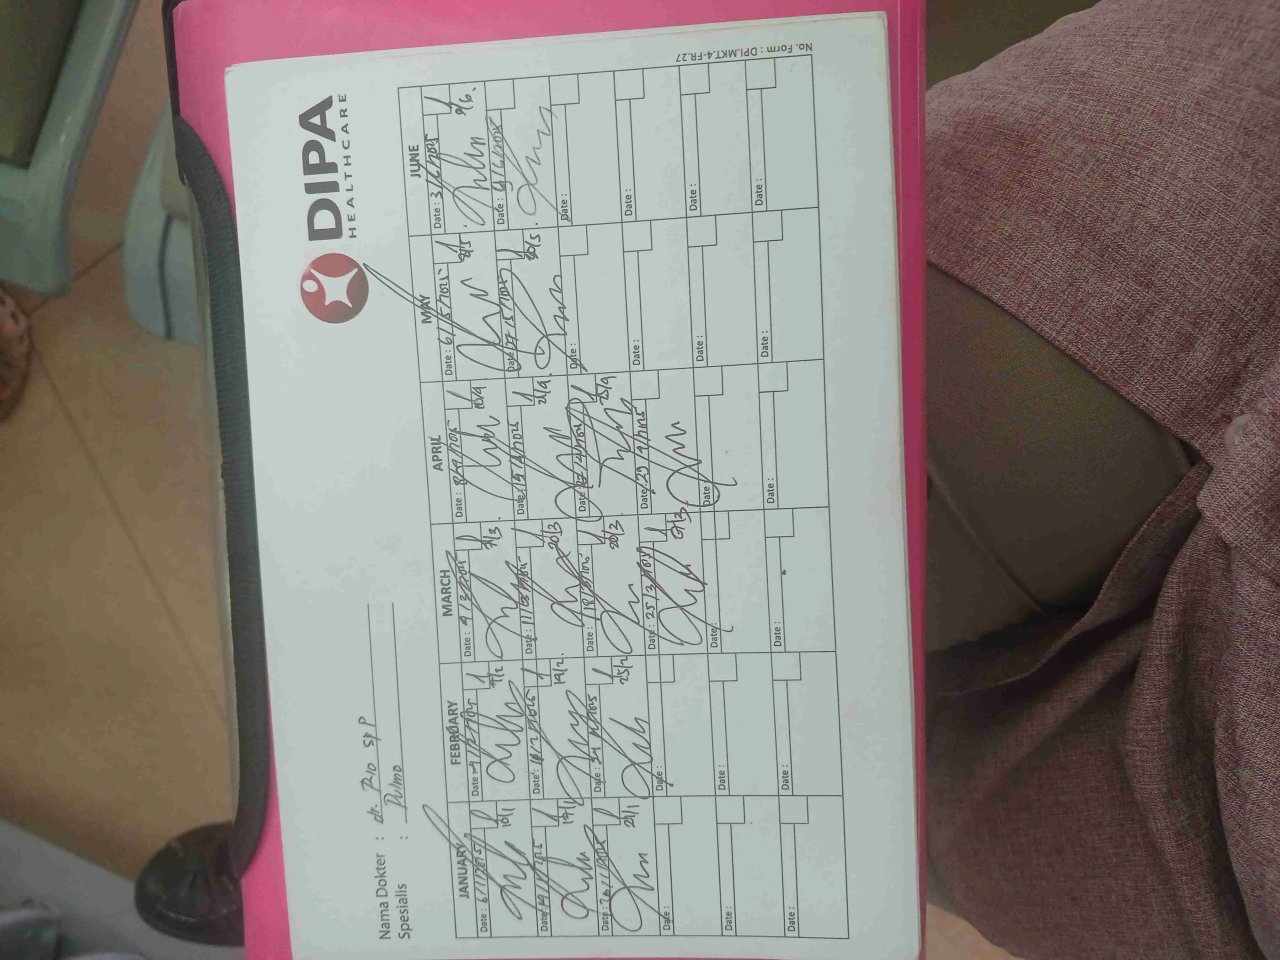 DIPA
HEALTHCARE
Nama Dokter : dr. Rio Sp P
Spesialis : Pulmo
JANUARY FEBRUARY MARCH APRIL MAY JUNE
Date : 6/1/2025 Date : Date : 4/3/2025 Date : 8/4/2025 Date : 6/5/2025 Date : 3/6/2025
10/1 7/2 7/3 10/4 8/5 9/6
Date : Date : Date : 11/03/2025 Date : Date : 27/5/2025 Date :
17/1 19/2 20/3 21/4 30/5
Date : Date : Date : 18/3/2025 Date : Date : Date :
21/1 25/2 20/3 25/4
Date : Date : Date : 25/3/2025 Date : 29/4/2025 Date : Date :
Date : Date : Date : Date : Date : Date :
Date : Date : Date : Date : Date : Date :
No. Form : DPI.MKT.4-FR.27